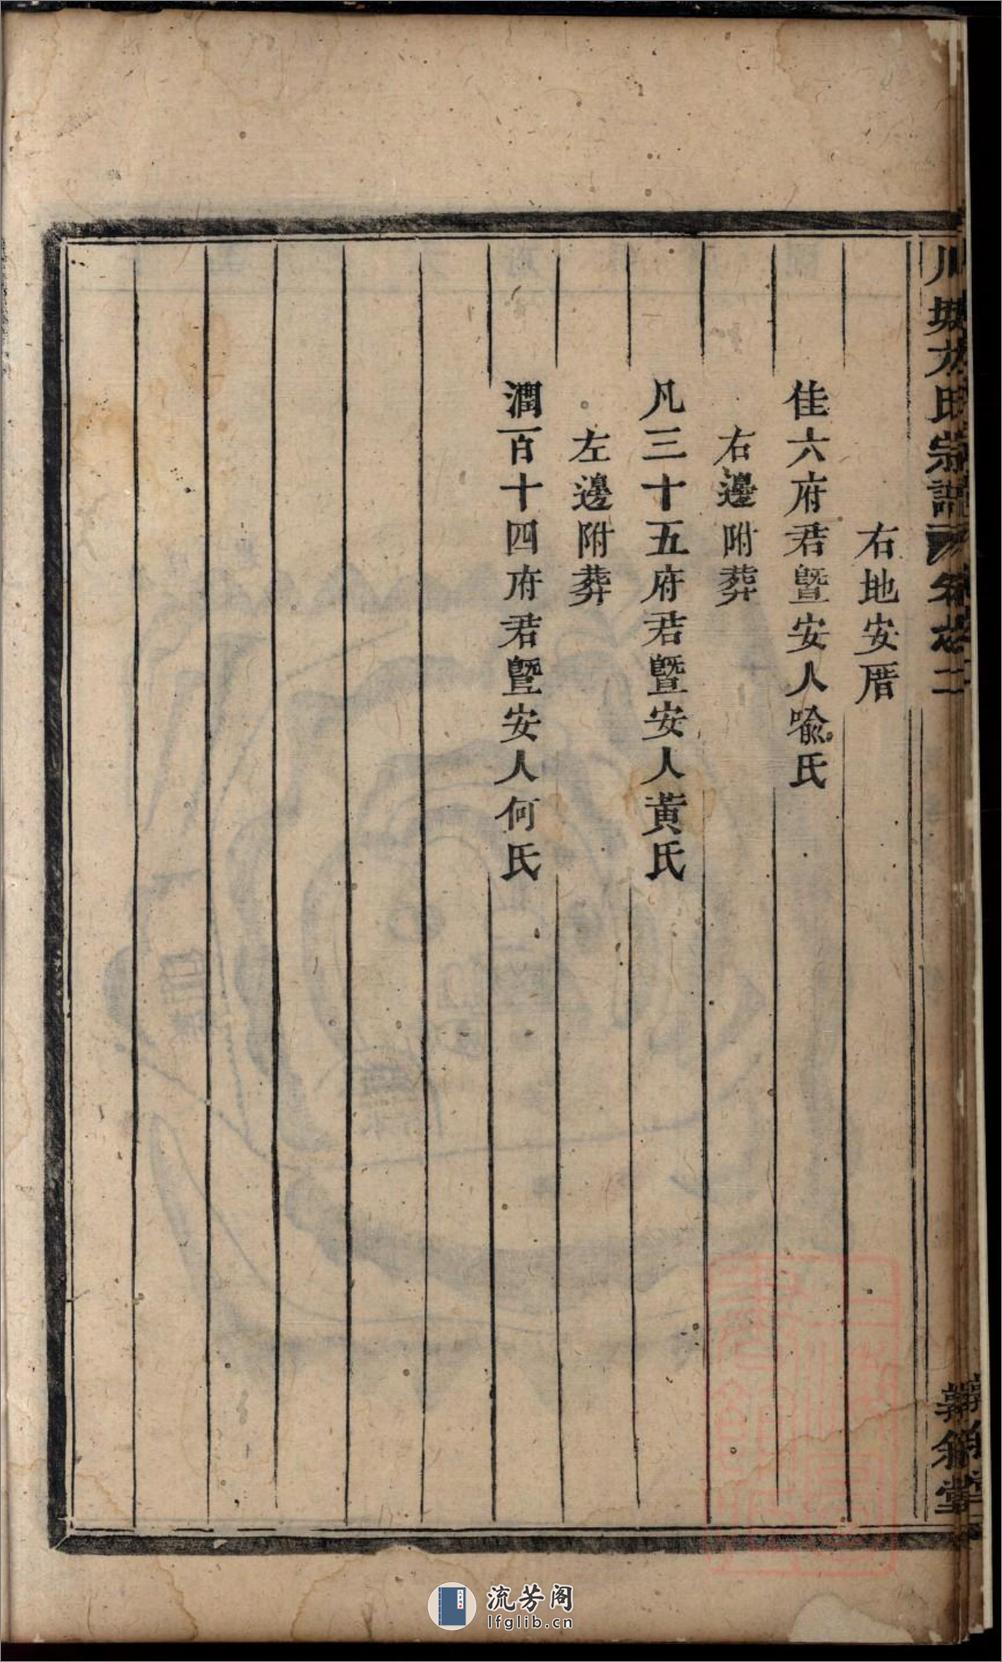 川坡方氏宗譜 卷之二
右地安厝
佳六府君暨安人喩氏
右邊附葬
凡三十五府君暨安人黃氏
左邊附葬
潤百十四府君暨安人何氏
流芳阁
lfglib.cn